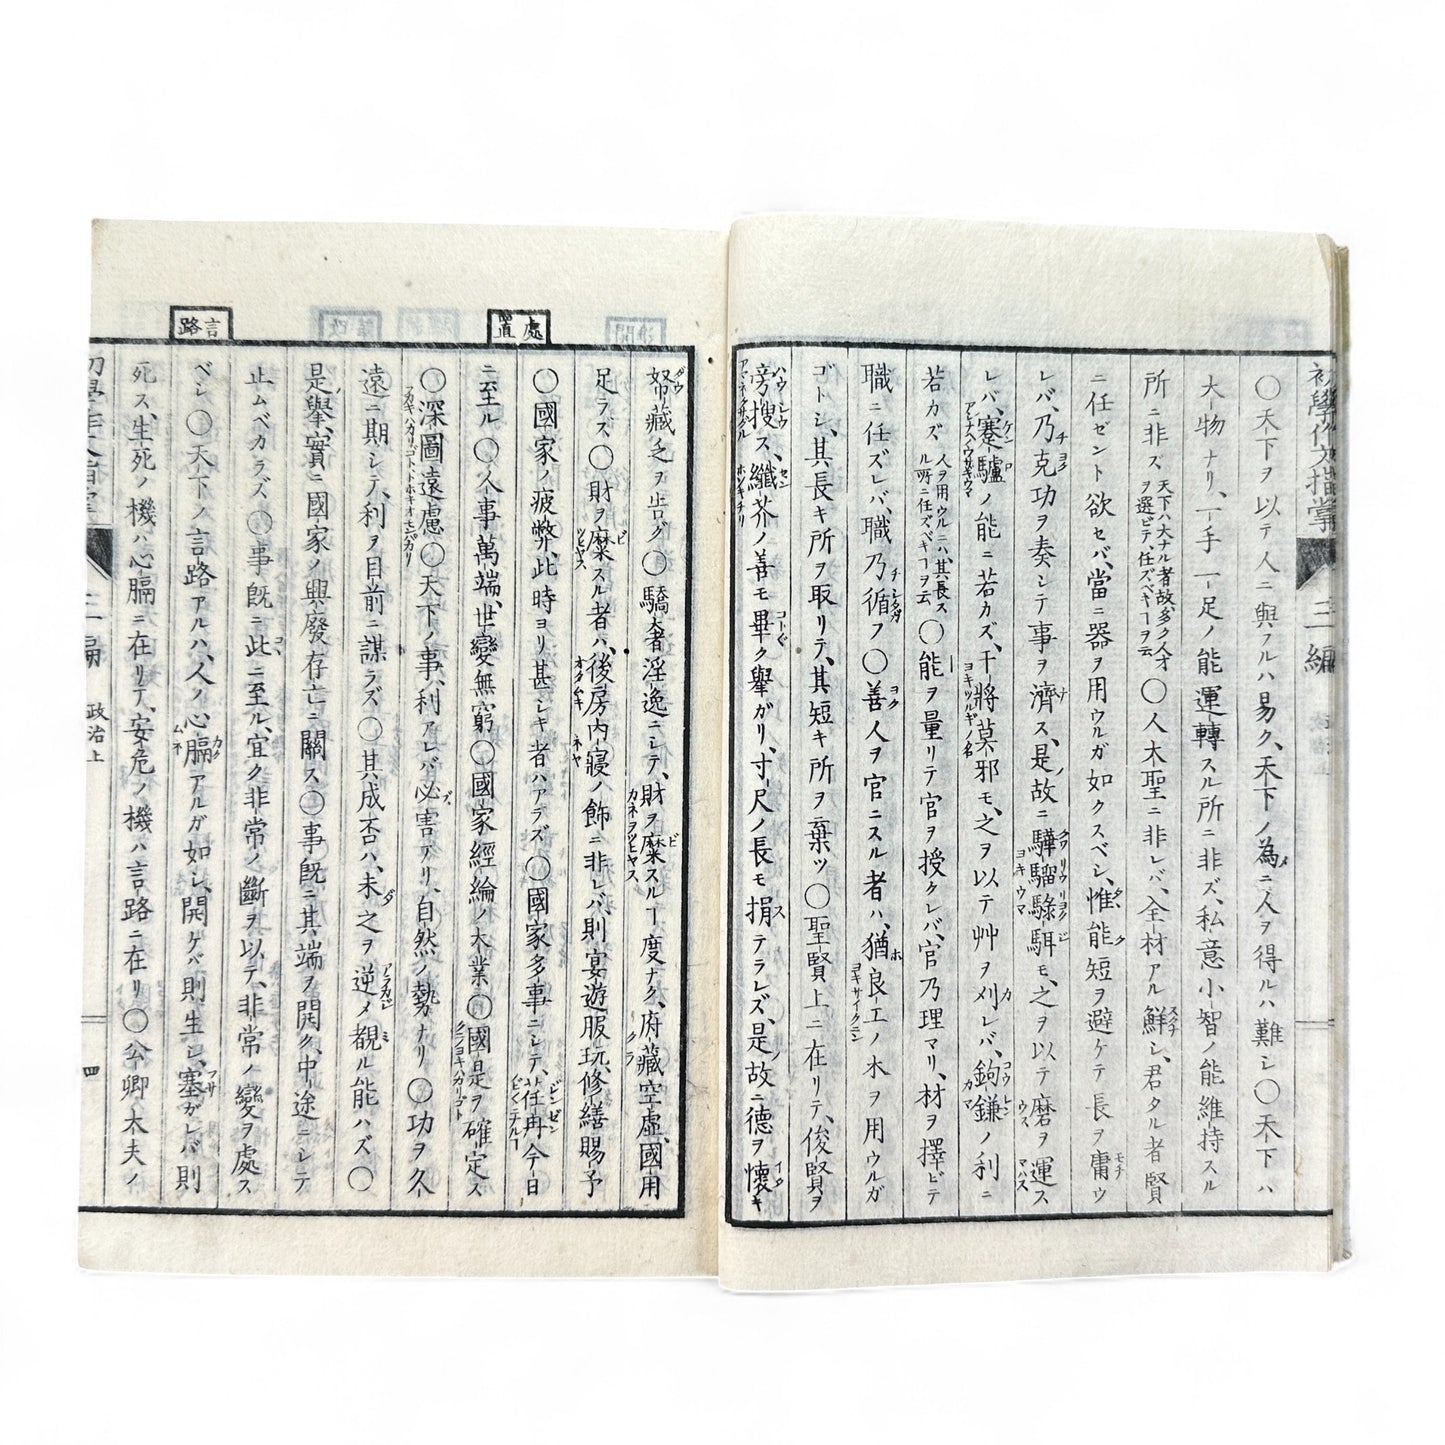 初學作文指掌 三編
〇天下ヲ以テ人ニ與フルハ易ク、天下ノ為ニ人ヲ得ルハ難シ〇天下ハ
大物ナリ、一手一足ノ能運轉スル所ニ非ズ、私意小智ノ能維持スル
所ニ非ズ 天下ハ大ナル者故、多ク人才ヲ選ビテ、任ズベキヿヲ云 〇人木聖ニ非レバ、全材アル鮮シ、君タル者賢
ニ任ゼント欲セバ、當ニ器ヲ用ウルガ如クスベシ、惟能短ヲ避ケテ長ヲ庸ウ
レバ、乃克功ヲ奏シテ事ヲ濟ス、是故ニ驊騮騄駬モ、之ヲ以テ磨ヲ運ス
レバ、蹇驢ノ能ニ若カズ、干將莫邪モ、之ヲ以テ艸ヲ刈レバ、鉤鎌ノ利ニ
若カズ 人ヲ用ウルニハ、其長スル所ニ任ズベキヿヲ云 〇能ヲ量リテ官ヲ授クレバ、官乃理マリ、材ヲ擇ビテ
職ニ任ズレバ、職乃循フ〇善人ヲ官ニスル者ハ、猶良工ノ木ヲ用ウルガ
ゴトシ、其長キ所ヲ取リテ、其短キ所ヲ棄ツ〇聖賢上ニ在リテ、俊賢ヲ
旁搜ス、纖芥ノ善モ畢ク擧ガリ、寸尺ノ長モ捐テラレズ、是故ニ德ヲ懷キ
處置
言路
帑藏乏ヲ告グ〇驕奢淫逸ニシテ、財ヲ糜スルヿ度ナク、府藏空虛、國用
足ラズ〇財ヲ糜スル者ハ、後房内寢ノ飾ニ非レバ、則宴遊服玩、修繕賜予
〇國家ノ疲弊、此時ヨリ甚シキ者ハアラズ〇國家多事ニシテ、荏苒今日
ニ至ル〇人事萬端、世變無窮〇國家經綸ノ大業〇國是ヲ確定ス
〇深圖遠慮〇天下ノ事、利アレバ必害アリ、自然ノ勢ナリ〇功ヲ久
遠ニ期シテ、利ヲ目前ニ謀ラズ〇其成否ハ、未之ヲ逆メ覩ル能ハズ〇
是擧、實ニ國家ノ興廢存亡ニ關ス〇事既ニ其端ヲ開ク、中途ニシテ
止ムベカラズ〇事既ニ此ニ至ル、宜ク非常ノ斷ヲ以テ、非常ノ變ヲ處ス
ベシ〇天下ノ言路アルハ、人ノ心膈アルガ如シ、開ケバ則生シ、塞ガレバ則
死ス、生死ノ機ハ心膈ニ在リテ、安危ノ機ハ言路ニ在リ〇公卿大夫ノ
三編 政治上 四